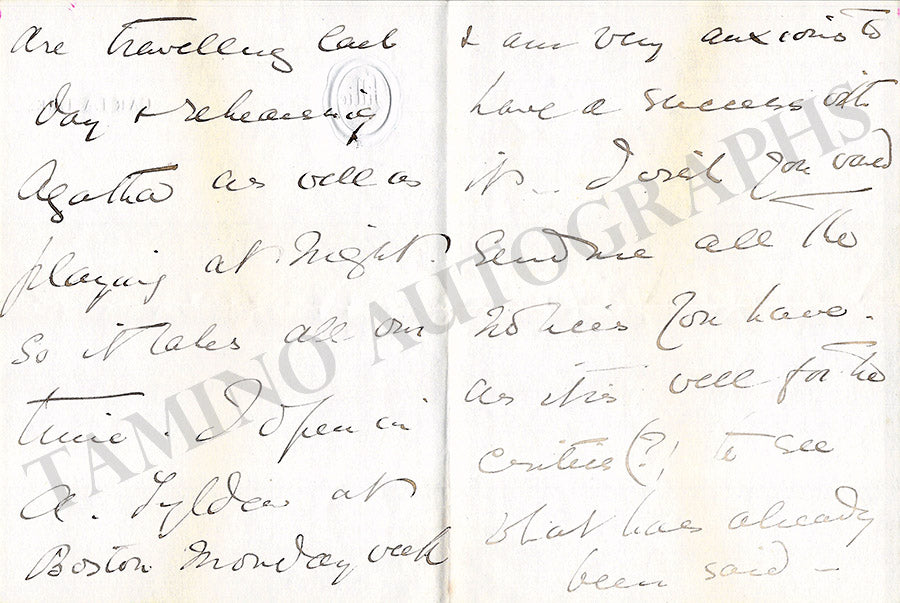 are travelling each
day & rehearsing
Agatha as well as
playing at night.
So it takes all our
time. I open in
A. Tylden at
Boston Monday week
& am very anxious to
have a success with
it.. I wish you would
send me all the
notices you have.
as it is well for the
critics (?) to see
what has already
been said -
TAMINO AUTOGRAPHS